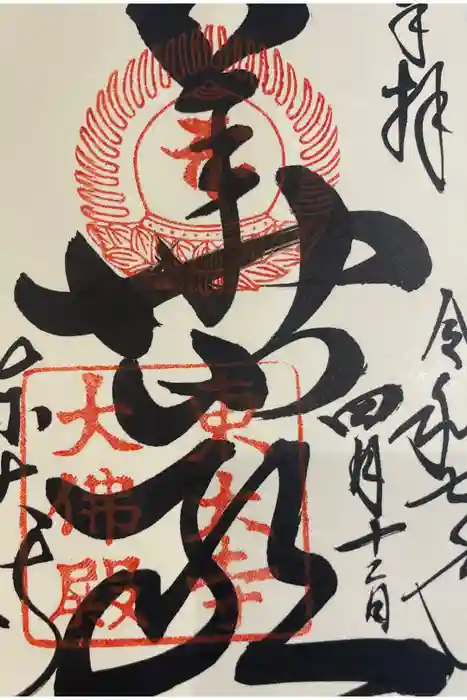 奉拝
令和七年
四月十二日
華厳
東大寺
東大寺
大佛殿